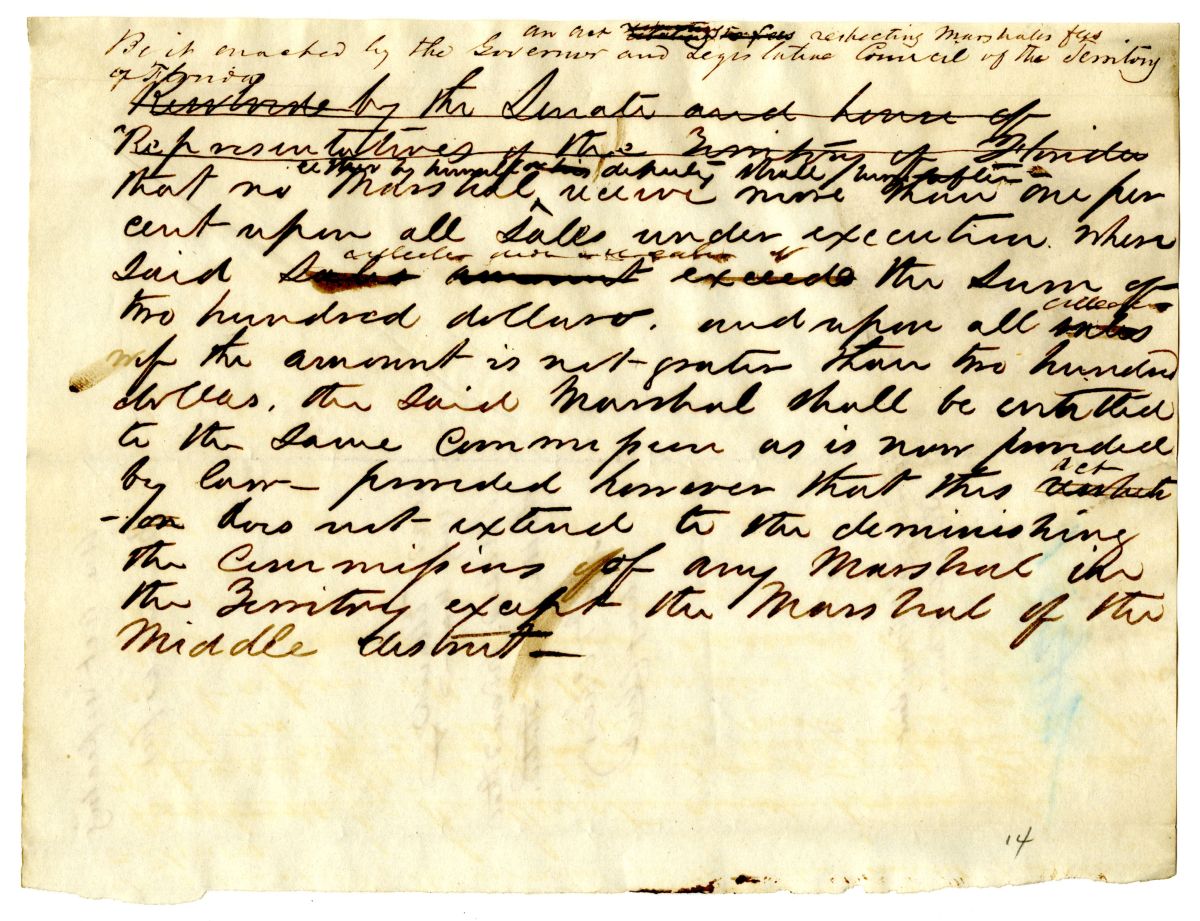 an act respecting Marshales fees
Be it enacted by the Governor and Legislative Council of the Territory
of Florida
Resolved by the Senate and house of
Representatives of the Territory of Florida
either by himself or his deputy shall hereafter
that no Marshal receive more than one per
cent upon all Sales under execution where
collected
said Sales amount exceede the Sum of
two hundred dollars. and upon all sales
if the amount is not grater than two hundred
dollas. the said Marshal shall be entitled
to the same Commission as is now provided
act
by law – provided however that this resolut
-ion does not extend to the deminishing
the Commissions of any Marshal in
the Territory except the Marshal of the
Middle district –
14